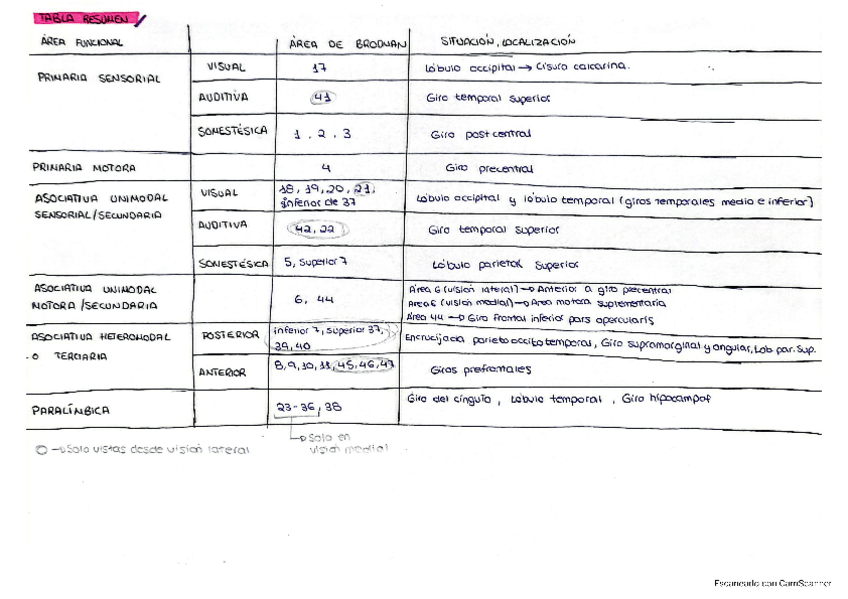 TABLA RESUMEN
ÁREA FUNCIONAL ÁREA DE BRODMAN SITUACIÓN, LOCALIZACIÓN
PRIMARIA SENSORIAL VISUAL 17 Lóbulo occipital → Cisura calcarina.
AUDITIVA 41 Giro temporal superior
SOMESTÉSICA 1, 2, 3 Giro postcentral
PRIMARIA MOTORA 4 Giro precentral
ASOCIATIVA UNIMODAL SENSORIAL/SECUNDARIA VISUAL 18, 19, 20, 21, inferior de 37 Lóbulo occipital y lóbulo temporal (giros temporales medio e inferior)
AUDITIVA 42, 22 Giro temporal superior
SOMESTÉSICA 5, superior 7 Lóbulo parietal superior
ASOCIATIVA UNIMODAL MOTORA/SECUNDARIA 6, 44 Área 6 (visión lateral) → Anterior a giro precentral
Area 6 (visión medial) → Area motora suplementaria
Área 44 → Giro frontal inferior pars opercularis
ASOCIATIVA HETEROMODAL O TERCIARIA POSTERIOR inferior 7, superior 37, 39, 40 Encrucijada parieto occito temporal, Giro supramarginal y angular, Lob par. Sup.
ANTERIOR 8, 9, 10, 11, 45, 46, 47 Giros prefrontales
PARALÍMBICA 23-36, 38 Giro del cíngulo, Lóbulo temporal, Giro hipocampal
→ Solo en visión medial
→ Solo vistas desde visión lateral
Escaneado con CamScanner